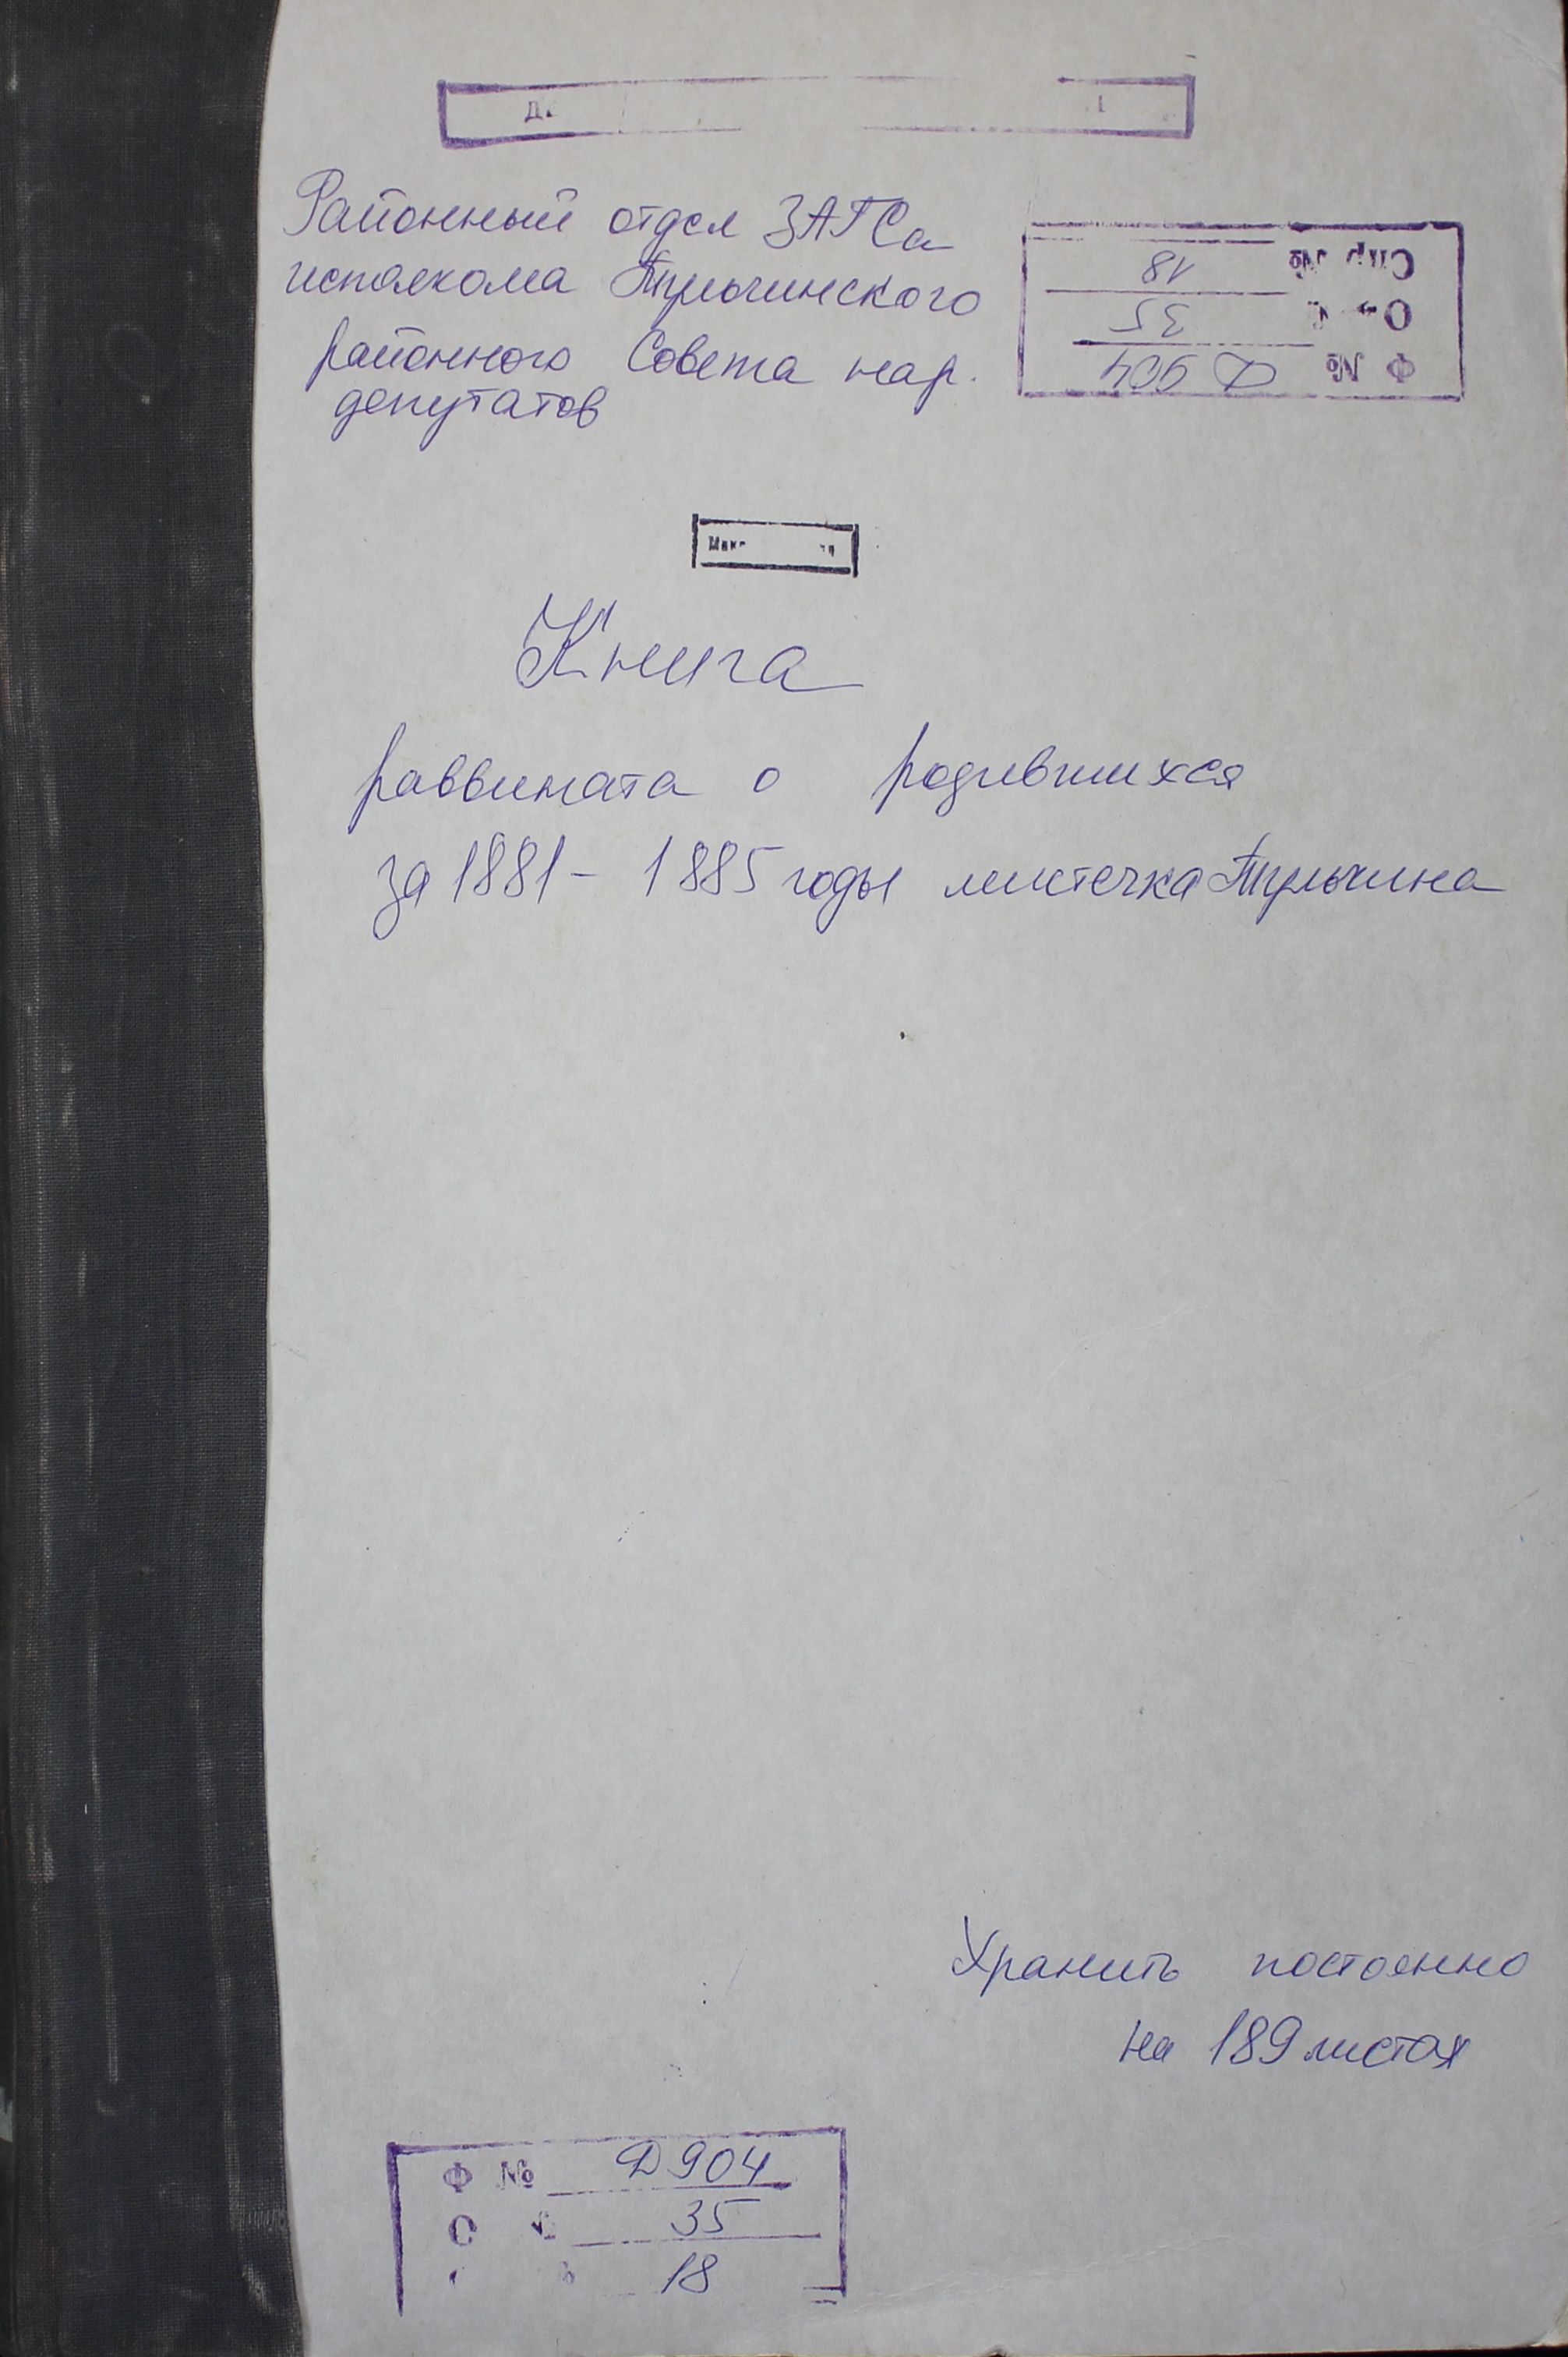 Районный отдел ЗАГСа
исполкома Тульчинского
районного Совета нар.
депутатов
Спр №
18
35
Ф № Д 904
Книга
раввината о родившихся
за 1881 - 1885 годы листечка Тульчина
Хранить постоянно
на 189 листах
Ф № Д 904
О 35
18